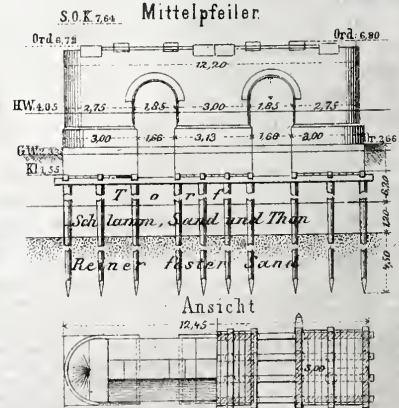 S.O.K. 7,64 Mittelpfeiler.
Ord. 6,80
12,20
H.W. 4,05 2,75 1,85 3,00 1,85 2,75
3,00 1,66 3,13 1,66 3,00
G.W.
Kl. 1,55
Torf 6,20
Schlamm, Sand und Thon 1,20
Reiner fester Sand 4,50
Ansicht
12,45
3,00